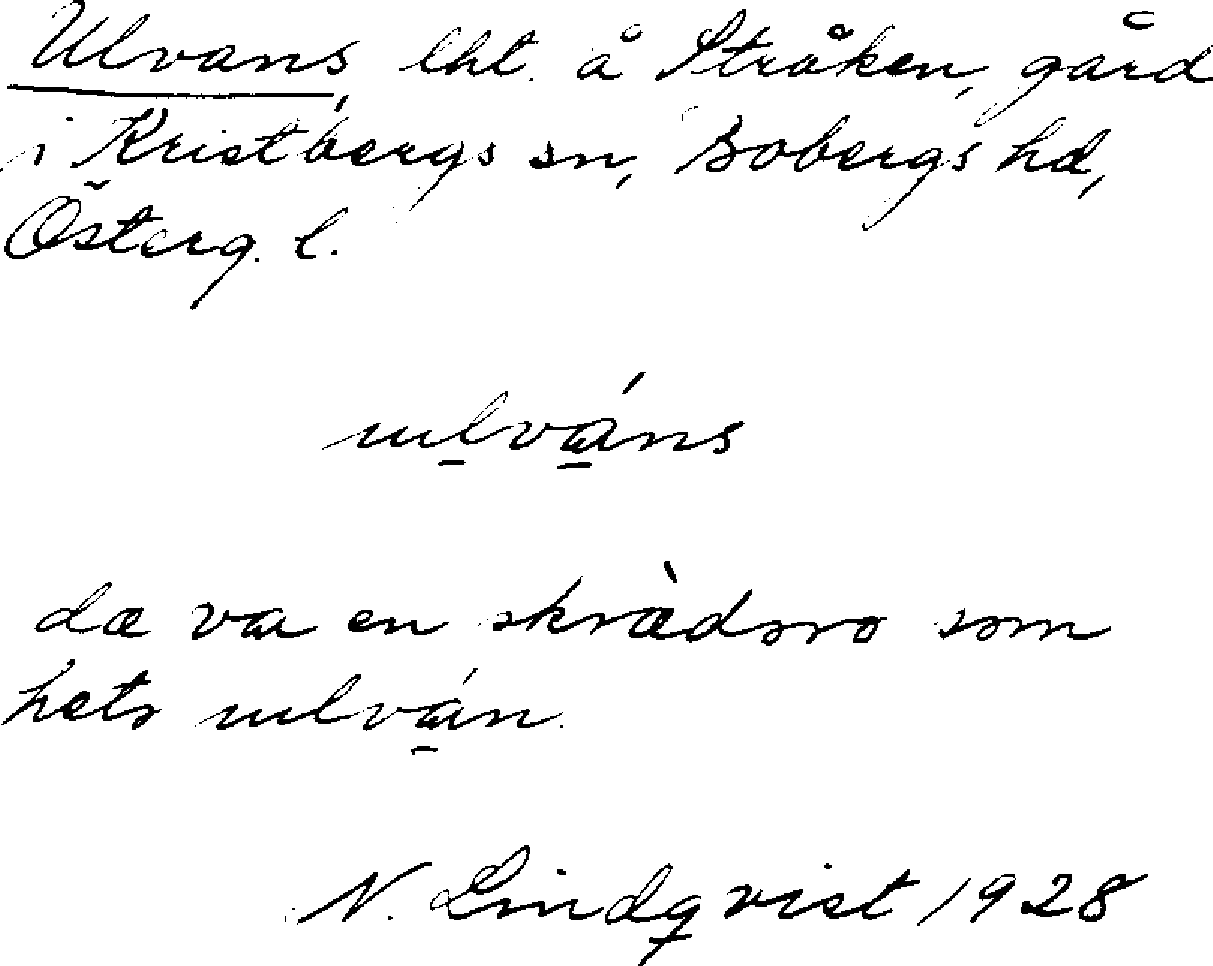 Ulvans, lht. å Stråken, gård
i Kristbergs sn, Bobergs hd,
Österg. l.
ulváns
dæ va en skræ̀dara som
heta ulván.
N. Lindqvist 1928